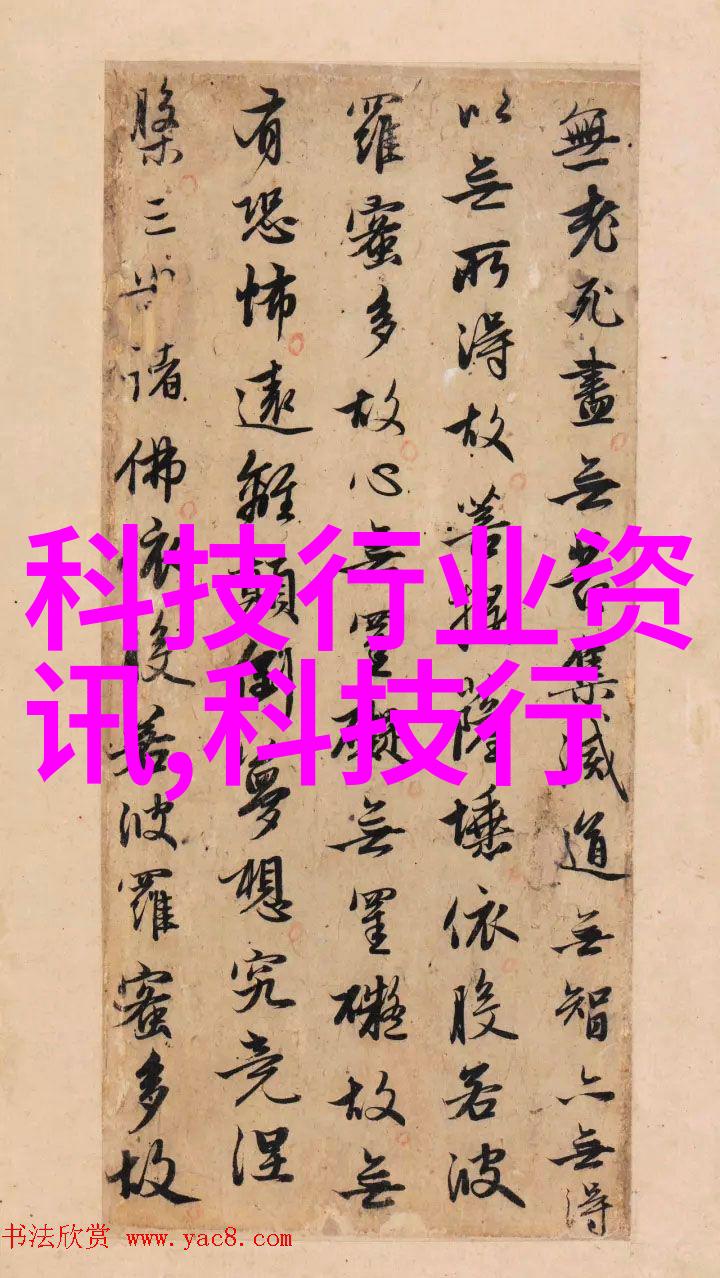 無老死盡無苦集滅道無智亦無得
以無所得故菩提薩埵依般若波
羅蜜多故心無罣礙無罣礙故無
有恐怖遠離顛倒夢想究竟涅
槃三世諸佛依般若波羅蜜多故
科技行业资
讯,科技行
书法欣赏 www.yac8.com